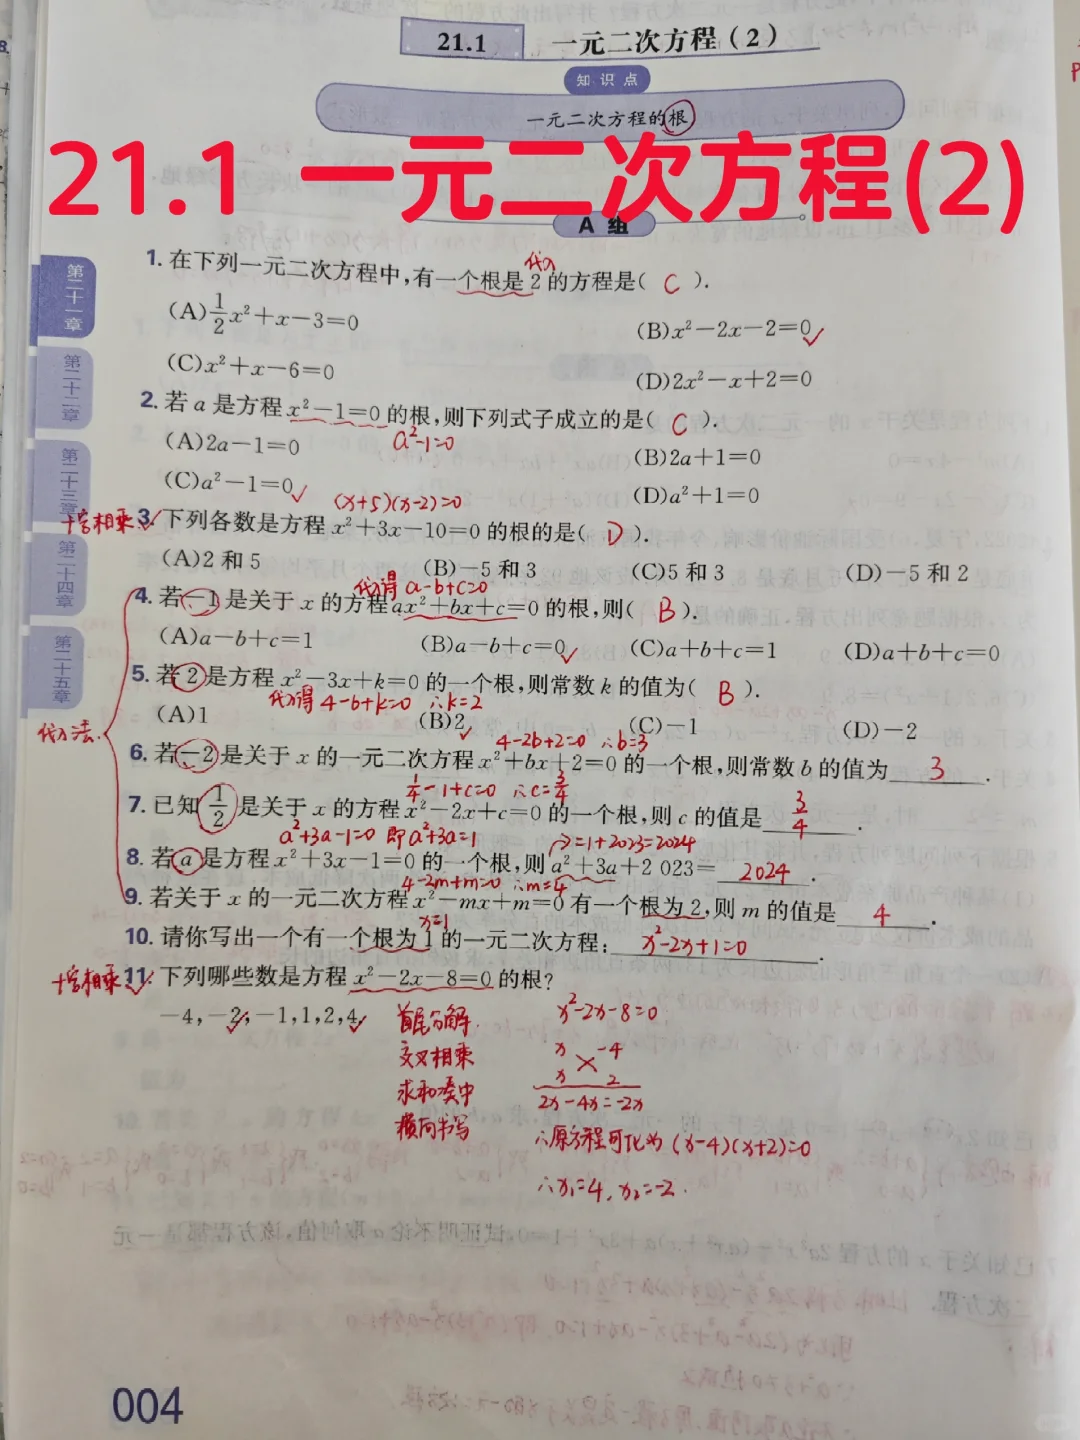 21.1 一元二次方程(2)
知识点
一元二次方程的根
21.1 一元二次方程(2)
A组
代入
1. 在下列一元二次方程中,有一个根是2的方程是( C ).
(A)1/2x²+x-3=0
(B)x²-2x-2=0
(C)x²+x-6=0
(D)2x²-x+2=0
2. 若a是方程x²-1=0的根,则下列式子成立的是( C ).
a²-1=0
(A)2a-1=0
(B)2a+1=0
(C)a²-1=0
(D)a²+1=0
(x+5)(x-2)=0
十字相乘
3. 下列各数是方程x²+3x-10=0的根的是( D ).
(A)2和5 (B)-5和3 (C)5和3 (D)-5和2
代入得 a-b+c=0
4. 若-1是关于x的方程ax²+bx+c=0的根,则( B ).
(A)a-b+c=1 (B)a-b+c=0 (C)a+b+c=1 (D)a+b+c=0
5. 若2是方程x²-3x+k=0的一个根,则常数k的值为( B ).
代入得 4-6+k=0 ∴k=2
(A)1 (B)2 (C)-1 (D)-2
代入法.
4-2b+2=0 ∴b=3
6. 若-2是关于x的一元二次方程x²+bx+2=0的一个根,则常数b的值为 3 .
1/4-1+c=0 ∴c=3/4
7. 已知1/2是关于x的方程x²-2x+c=0的一个根,则c的值是 3/4 .
a²+3a-1=0 即a²+3a=1
=1+2023=2024
8. 若a是方程x²+3x-1=0的一个根,则a²+3a+2 023= 2024 .
4-2m+m=0 ∴m=4
9. 若关于x的一元二次方程x²-mx+m=0有一个根为2,则m的值是 4 .
x=1
10. 请你写出一个有一个根为1的一元二次方程: x²-2x+1=0 .
十字相乘
11. 下列哪些数是方程x²-2x-8=0的根?
-4,-2,-1,1,2,4.
首尾分解. x²-2x-8=0
交叉相乘 x -4
求和凑中 x 2
2x-4x=-2x
横向书写 ∴原方程可化为(x-4)(x+2)=0
∴x₁=4, x₂=-2.
第二十一章
第二十二章
第二十三章
第二十四章
第二十五章
004